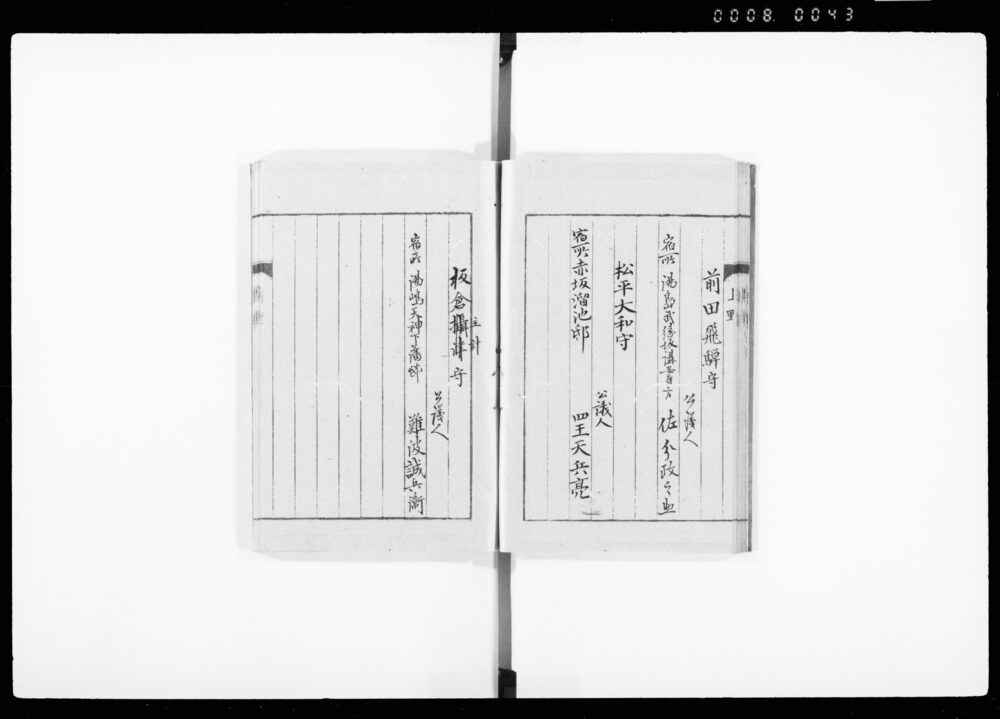 0008. 0043
前田飛驒守
公議人
宿所 湯島 佐分政之助
松平大和守
公議人
宿所赤坂溜池邸 四王天兵亮
主計
板倉攝津守
公議人
宿所 湯嶋天神下藩邸 難波誠兵衛